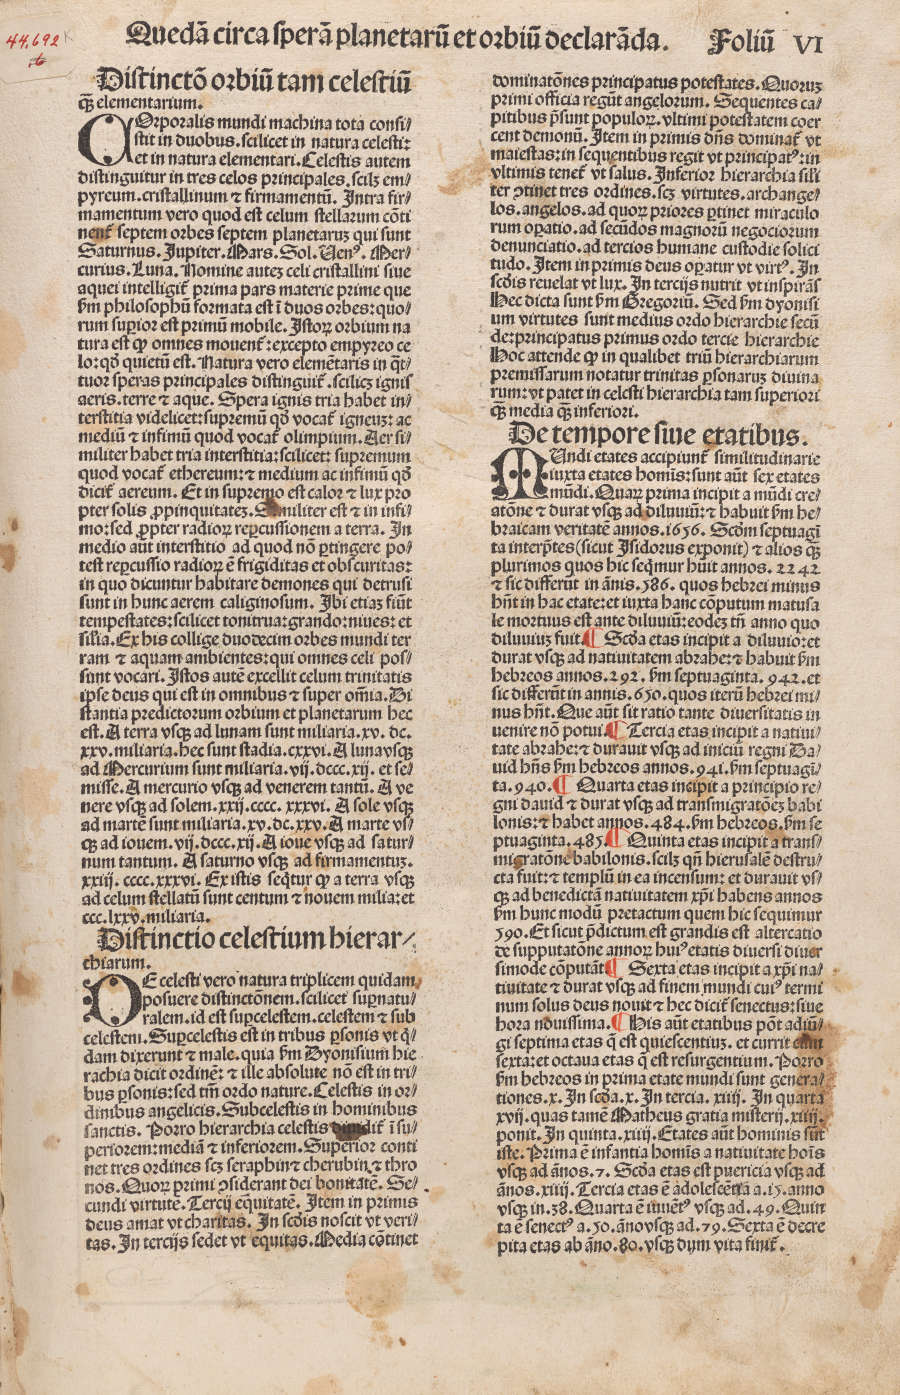 44,692
Quedā circa sperā planetarū et orbiū declarāda. Foliū VI
Distinctō orbiū tam celestiū
qꝫ elementarium.
COrporalis mundi machina tota consi⸗
stit in duobus.scilicet in natura celesti:
et in natura elementari.Celestis autem
distinguitur in tres celos principales.scilꝫ em⸗
pyreum.cristallinum ⁊ firmamentū. Intra fir⸗
mamentum vero quod est celum stellarum cōti
nent̄ septem orbes septem planetaruꝫ qui sunt
Saturnus. Jupiter. Mars. Sol. Venꝰ. Mer⸗
curius. Luna. Nomine auteꝫ celi cristallini siue
aquei intelligit̄ prima pars materie prime que
ẜm philosophū formata est ī duos orbes:quo⸗
rum suꝑior est primū mobile. Istoꝝ orbium na
tura est ꝙ omnes mouent̄:excepto empyreo ce
lo:qđ quietū est. Natura vero elemētaris in q̄t⸗
tuor speras principales distinguit̄.scilicꝫ ignis
aeris.terre ⁊ aque. Spera ignis tria habet in⸗
terstitia videlicet:supremū qđ vocat̄ igneuꝫ: ac
mediū ⁊ infimū quod vocat̄ olimpium. Aer si⸗
militer habet tria interstitia:scilicet: supremum
quod vocat̄ ethereum:⁊ medium ac infimū qđ
dicit̄ aereum. Et in supremo est calor ⁊ lux pro
pter solis ꝓpinquitateꝫ. Similiter est ⁊ in infi⸗
mo:sed ꝓpter radioꝝ reꝑcussionem a terra. In
medio aūt interstitio ad quod nō ꝑtingere po⸗
test reꝑcussio radioꝝ ē frigiditas et obscuritas:
in quo dicuntur habitare demones qui detrusi
sunt in hunc aerem caliginosum. Ibi etiaꝫ fiūt
tempestates:scilicet tonitrua:grando:niues: et
silīa. Ex his collige duodecim orbes mundi ter
ram ⁊ aquam ambientes:qui omnes celi pos⸗
sunt vocari. Istos autē excellit celum trinitatis
ipse deus qui est in omnibus ⁊ super om̄ia. Di
stantia predictorum orbium et planetarum hec
est. A terra vsqꝫ ad lunam sunt miliaria. xv. dc.
xxv.miliaria.hec sunt stadia.cxxvi. A lunavsqꝫ
ad Mercurium sunt miliaria.vij.dccc.xij. et se⸗
misse. A mercurio vsqꝫ ad venerem tantū. A ve
nere vsqꝫ ad solem.xxij.cccc. xxxvi. A sole vsqꝫ
ad martē sunt miliaria.xv.dc.xxv. A marte vs⸗
qꝫ ad iouem. vij.dccc.xij. A ioue vsqꝫ ad satur⸗
num tantum. A saturno vsqꝫ ad firmamentuꝫ.
xxiij. cccc.xxxvi. Ex istis seq̄tur ꝙ a terra vsqꝫ
ad celum stellatū sunt centum ⁊ nouem milia:et
ccc.lxxv.miliaria.
Distinctio celestium hierar⸗
chiarum.
DE celesti vero natura triplicem quidam
posuere distinctōnem.scilicet suꝑnatu⸗
ralem.id est suꝑcelestem.celestem ⁊ sub
celestem. Suꝑcelestis est in tribus ꝑsonis vt q̄⸗
dam dixerunt ⁊ male.quia ẜm Dyonisium hie
rachia dicit ordinē: ⁊ ille absolute nō est in tri⸗
bus ꝑsonis:sed tm̄ ordo nature.Celestis in or⸗
dinibus angelicis. Subcelestis in hominibus
sanctis. Porro hierarchia celestis diuidit̄ ī su⸗
periorem:mediā ⁊ inferiorem. Superior conti
net tres ordines scꝫ seraphin⁊ cherubin ⁊ thro
nos. Quoꝝ primi ꝯsiderant dei bonitatē. Se⸗
cundi virtutē. Tercij eq̄uitatē. Item in primus
deus amat vt charitas. In scđis noscit vt veri⸗
tas. In tercijs sedet vt equitas. Media cōtinet
dominatōnes principatus potestates. Quoruꝫ
primi officia regūt angelorum. Sequentes ca⸗
pitibus p̄sunt populoꝝ.vltimi potestatem coer
cent demonū. Item in primis dn̄s dominat̄ vt
maiestas:in sequentibus regit vt principatꝰ:in
vltimis tenet̄ vt salus. Inferior hierarchia sili
ter ꝯtinet tres ordines.scꝫ virtutes.archange⸗
los.angelos.ad quoꝝ priores ꝑtinet miraculo
rum oꝑatio.ad secūdos magnorū negociorum
denunciatio.ad tercios humane custodie solici
tudo. Item in primis deus oꝑatur vt virtꝰ. In
scđis reuelat vt lux. In tercijs nutrit vt inspirās̄
Hec dicta sunt ẜm Gregoriū. Sed ẜm dyonisi
um virtutes sunt medius ordo hierarchie secū
de:principatus primus ordo tercie hierarchie
Hoc attende ꝙ in qualibet triū hierarchiarum
premissarum notatur trinitas ꝑsonaruꝫ diuina
rum:vt patet in celesti hierarchia tam superiori
qꝫ media qꝫ inferiori.
De tempore siue etatibus.
MUndi etates accipiunt̄ similitudinarie
iuxta etates homīs:sunt aūt sex etates
mūdi. Quaꝝ prima incipit a mūdi cre⸗
atōne ⁊ durat vsqꝫ ad diluuiū:⁊ habuit ẜm he⸗
braicam veritatē annos.1656. Scđm septuagī
ta interp̄tes(sicut Isidorus exponit) ⁊ alios qꝫ
plurimos quos hic seq̄mur hūit annos. 2242
⁊ sic differūt in ānis.586. quos hebrei minus
hn̄t in hac etate:et iuxta hanc cōputum matusa
le mortuus est ante diluuiū:eodeꝫ tn̄ anno quo
diluuiuꝫ fuit.¶ Scđa etas incipit a diluuio:et
durat vsqꝫ ad natiuitatem abrahe:⁊ habuit ẜm
hebreos annos.292. ẜm septuaginta. 942.et
sic differūt in annis.650.quos iterū hebrei mi⸗
nus hn̄t. Que aūt sit ratio tante diuersitatis in
uenire nō potui.¶ Tercia etas incipit a natiui⸗
tate abrahe:⁊ durauit vsqꝫ ad iniciū regni Da⸗
uid hn̄s ẜm hebreos annos. 941.ẜm septuagī⸗
ta.940.¶ Quarta etas incipit a principio re⸗
gni dauid ⁊ durat vsqꝫ ad transmigratōeꝫ babi
lonis:⁊ habet annos.484.ẜm hebreos.ẜm se
ptuaginta.485.¶ Quinta etas incipit a trans⸗
migratōne babilonis.scilꝫ qn̄ hierusalē destru⸗
cta fuit:⁊ templū in ea incensum: et durauit vs⸗
qꝫ ad benedictā natiuitatem xp̄i habens annos
ẜm hunc modū pretactum quem hic sequimur
590.Et sicut p̄dictum est grandis est altercatio
de supputatōne annoꝝ huiꝰ etatis diuersi diuer
simode cōputāt.¶ Sexta etas incipit a xp̄i na⸗
tiuitate ⁊ durat vsqꝫ ad finem mundi cuiꝰ termi
num solus deus nouit ⁊ hec dicit̄ senectus:siue
hora nouissima.¶ His aūt etatibus pōt adiū⸗
gi septima etas q̄ est quiescentiuꝫ. et currit cum
sexta:et octaua etas q̄ est resurgentium. Porro
ẜm hebreos in prima etate mundi sunt genera⸗
tiones.x. In scđa.x. In tercia.xiiij. In quarta
xvij.quas tamē Matheus gratia misterij.xiiij.
ponit. In quinta.xiiij. Etates aūt hominis sūt
iste. Prima ē infantia homīs a natiuitate hoīs
vsqꝫ ad ānos.7. Scđa etas est puericia vsqꝫ ad
ānos.xiiij. Tercia etas ē adolescētia a.15.anno
vsqꝫ in.38. Quarta ē iuuētꝰ vsqꝫ ad.49. Quin
ta ē senectꝰ a.50.ānovsqꝫ ad.79. Sexta ē decre
pita etas ab āno.80.vsqꝫ dum vita finit̄.